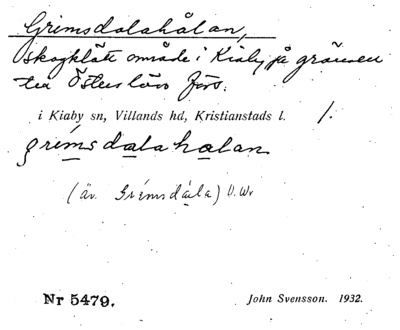 Grimsdalahålan,
skogklätt område i Kiaby på gränsen
till Österslövs förs.
i Kiaby sn, Villands hd, Kristianstads l. 1.
grimsdalahalan
(äv. Grimsdåla) D. Wr
Nr 5479. John Svensson. 1932.